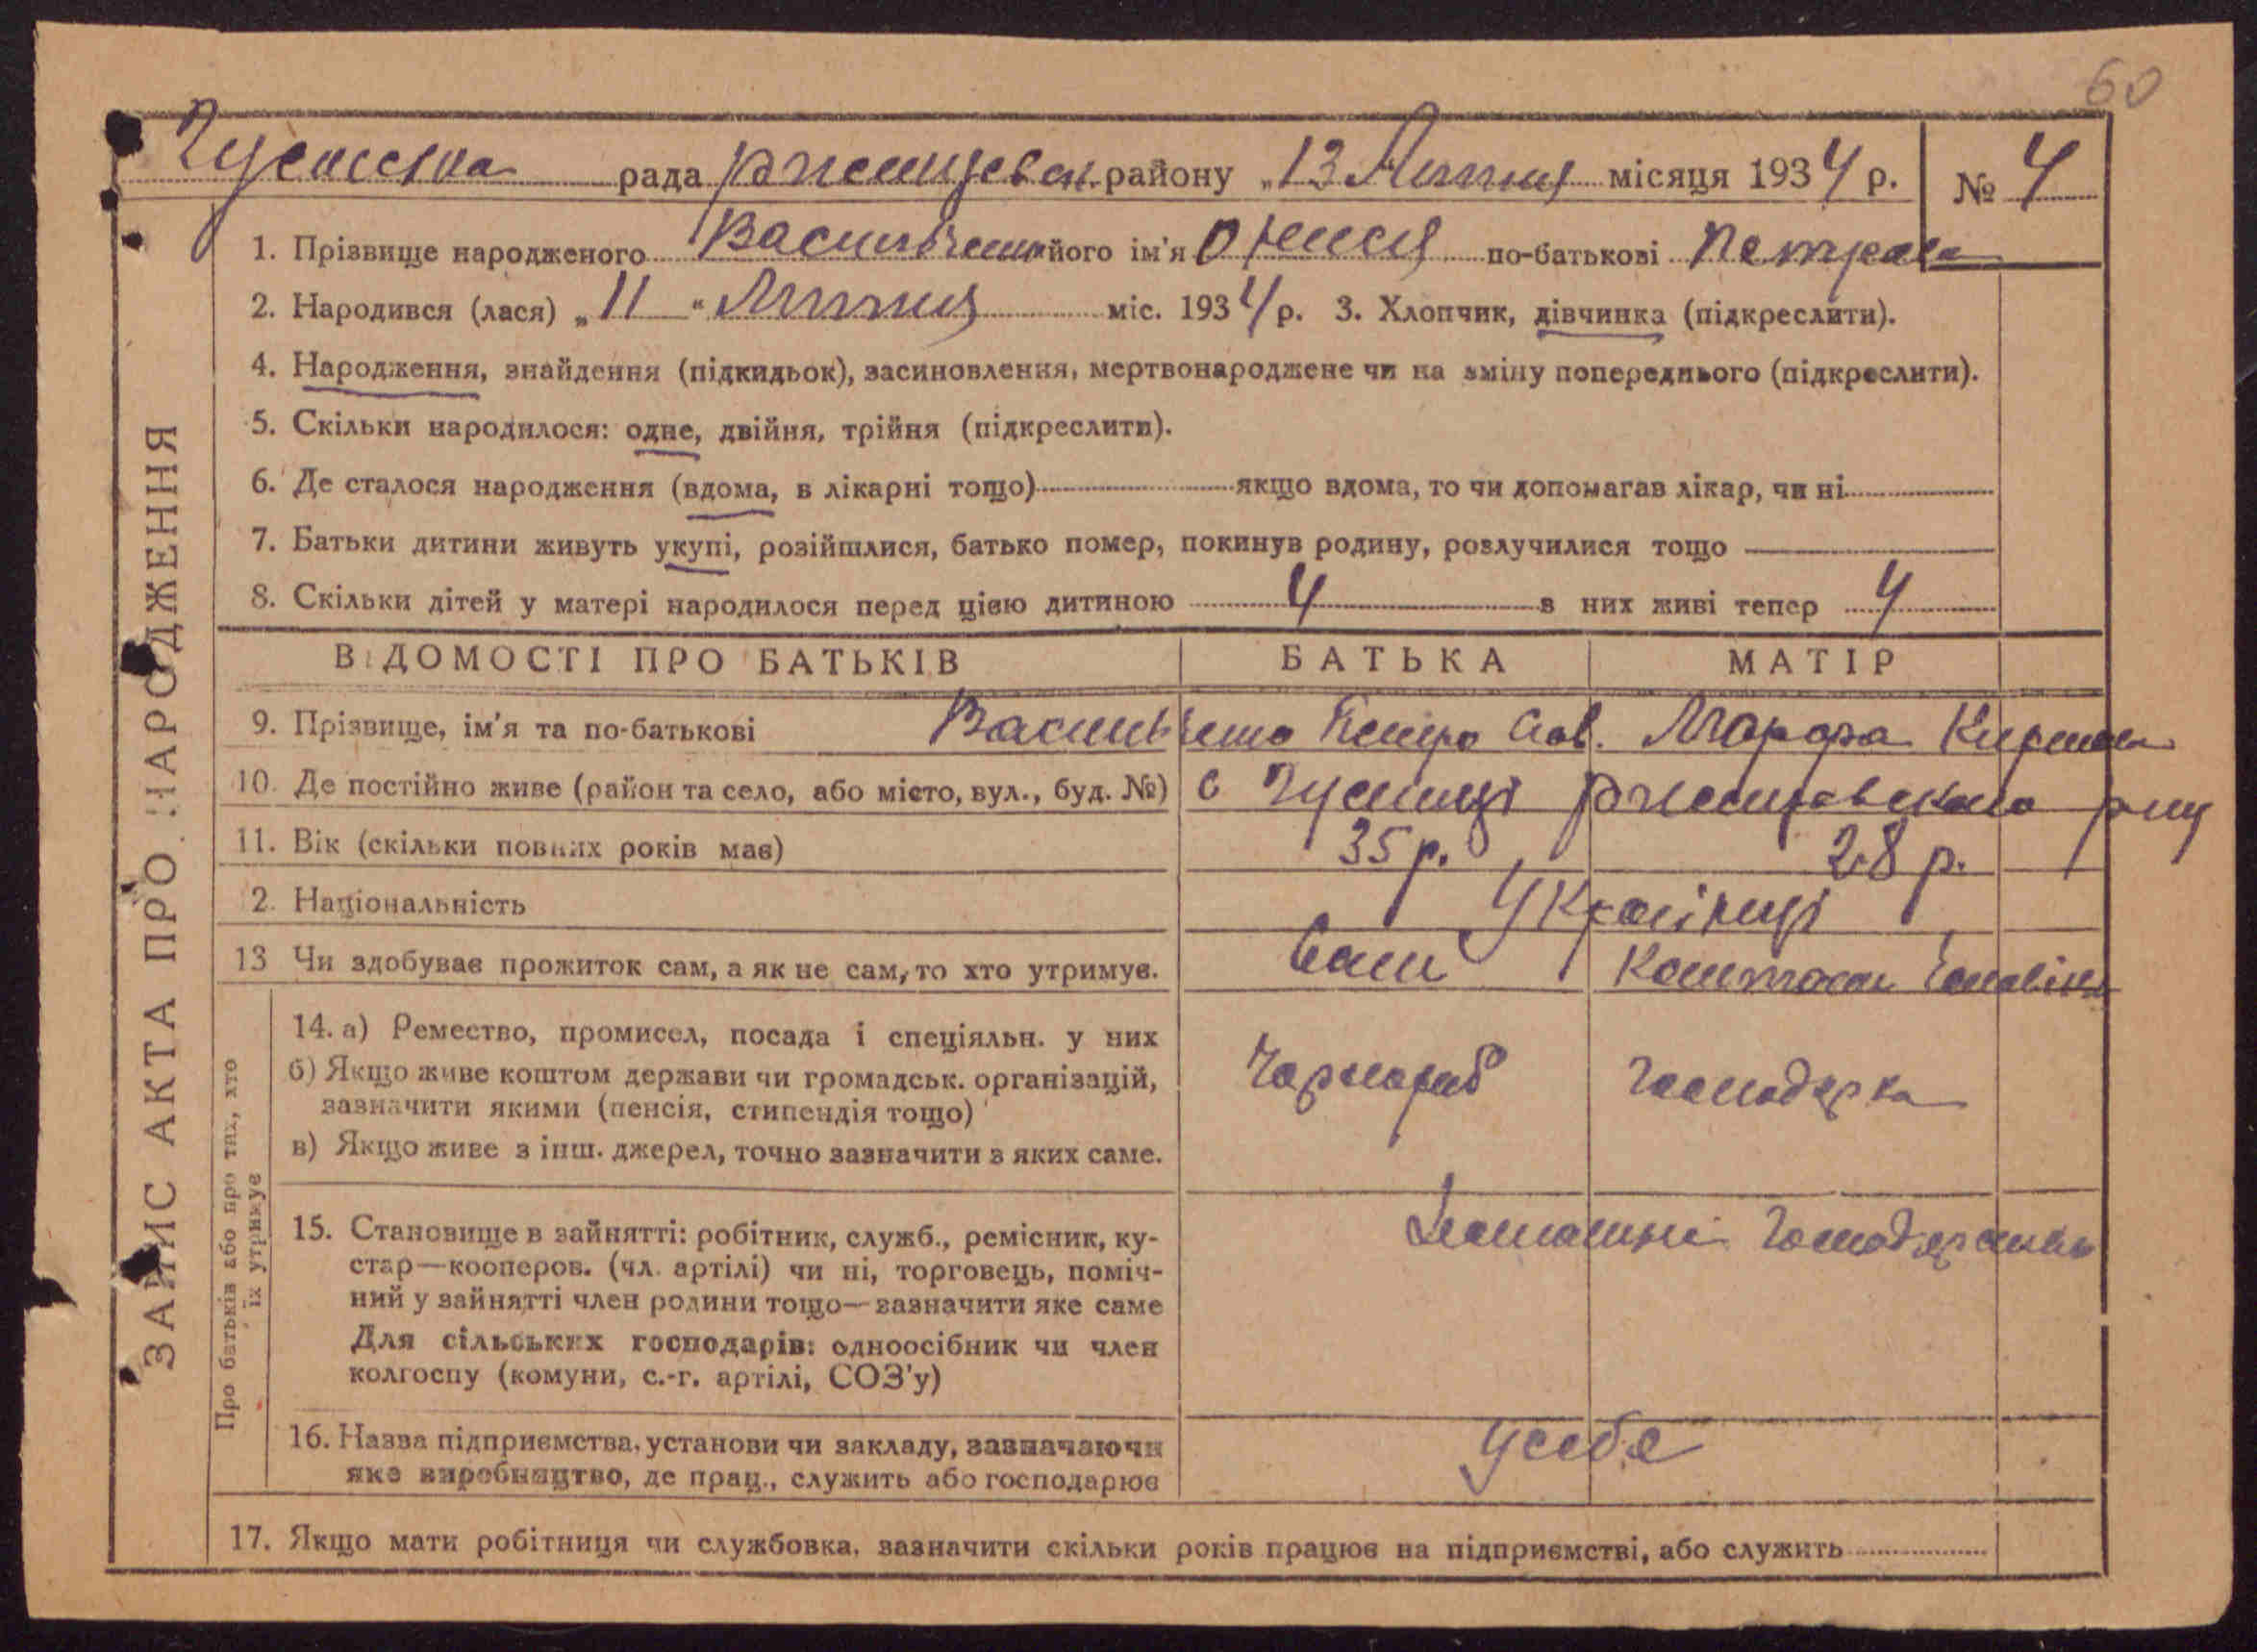 60
рада Ржищевськ. району „13 Липня місяця 1934 р. № 4
1. Прізвище народженого Васильченко його ім'я Оксися по-батькові Петрова
2. Народився (лася) „11 " Липня міс. 1934 р. 3. Хлопчик, дівчинка (підкреслити).
4. Народження, знайдення (підкидьок), засиновлення, мертвонароджене чи на зміну попереднього (підкреслити).
5. Скільки народилося: одне, двійня, трійня (підкреслити).
6. Де сталося народження (вдома, в лікарні тощо) якщо вдома, то чи допомагав лікар, чи ні
7. Батьки дитини живуть укупі, розійшлися, батько помер, покинув родину, розлучилися тощо
8. Скільки дітей у матері народилося перед цією дитиною 4 з них живі тепер 4
ВІДОМОСТІ ПРО БАТЬКІВ БАТЬКА МАТІР
9. Прізвище, ім'я та по-батькові Васильченко Петро Марфа
10. Де постійно живе (район та село, або місто, вул., буд. №) с р-ну
11. Вік (скільки повних років має) 35 р. 28 р.
2. Національність Українці
13 Чи здобуває прожиток сам, а як не сам, то хто утримує. Сам Коштом Чоловіка
14. а) Ремество, промисел, посада і спеціяльн. у них
б) Якщо живе коштом держави чи громадськ. організацій,
зазначити якими (пенсія, стипендія тощо)
Чорнороб Господарка
в) Якщо живе з інш. джерел, точно зазначити з яких саме.
15. Становище в зайнятті: робітник, служб., ремісник, ку-
стар—кооперов. (чл. артілі) чи ні, торговець, поміч-
ний у зайнятті член родини тощо—зазначити яке саме
Для сільських господарів: одноосібник чи член
колгоспу (комуни, с.-г. артілі, СОЗ'у)
16. Назва підприємства, установи чи закладу, зазначаючи
яке виробництво, де прац., служить або господарює
У себе
17. Якщо мати робітниця чи службовка, зазначити скільки років працює на підприємстві, або служить
ЗАПИС АКТА ПРО НАРОДЖЕННЯ
Про батьків або про тих, хто
їх утримує